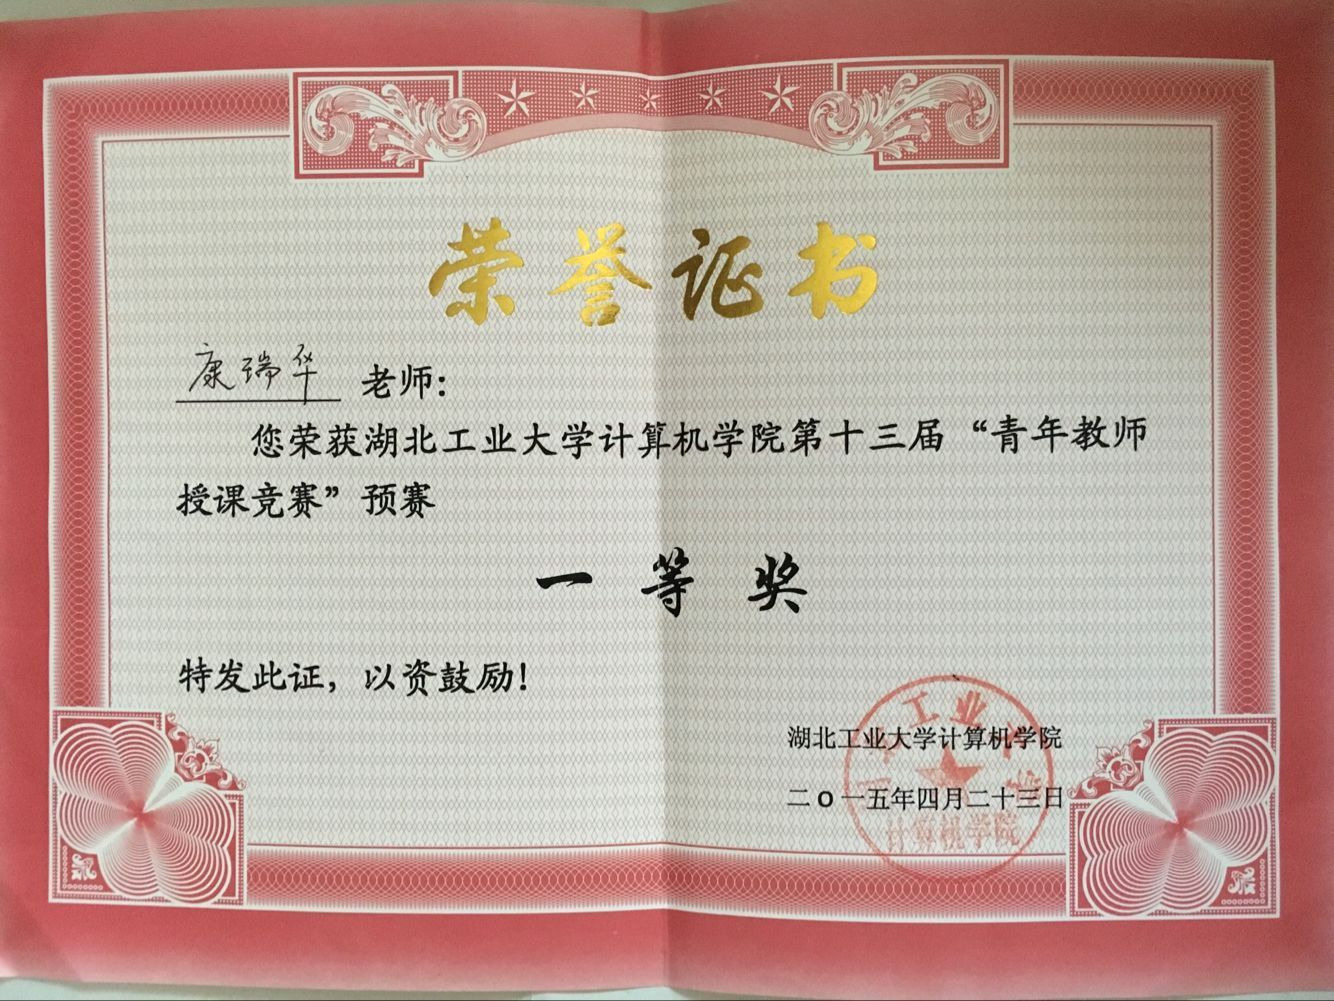 荣誉证书
康瑞华 老师：
您荣获湖北工业大学计算机学院第十三届“青年教师
授课竞赛”预赛
一等奖
特发此证，以资鼓励！
湖北工业大学计算机学院
二O一五年四月二十三日
工业大学
计算机学院